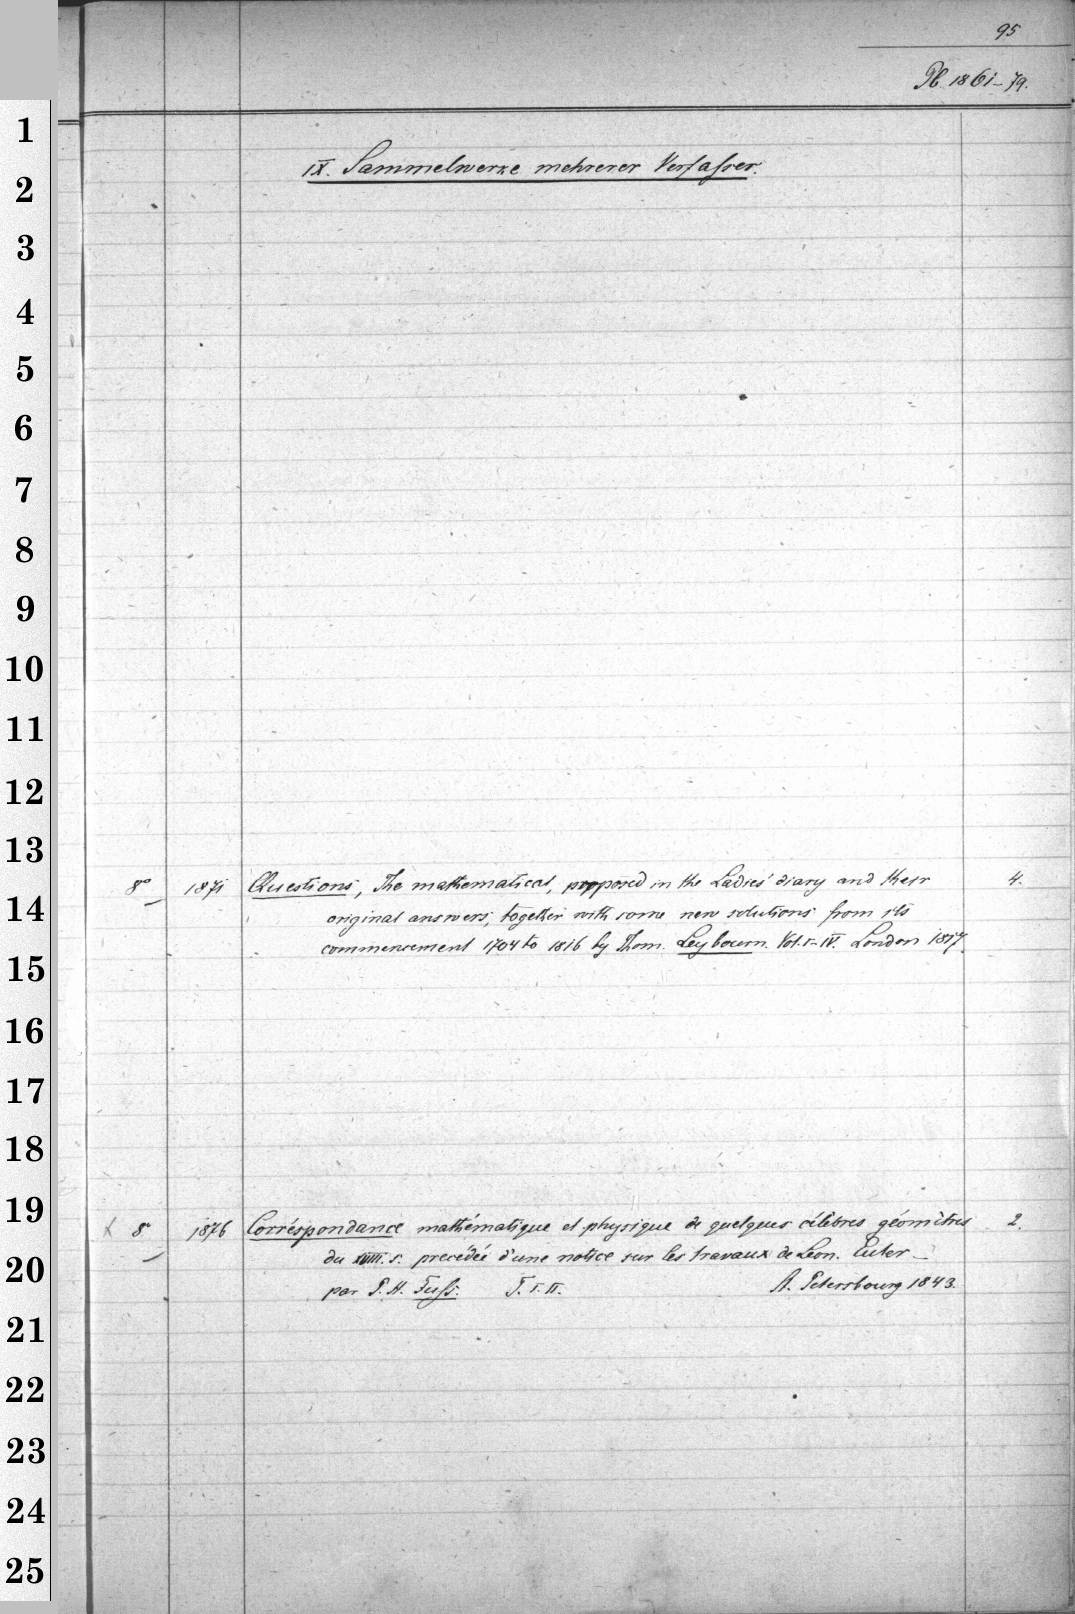 95
Pb. 1861-79.
IX. Sammelwerke mehrerer Verfasser.
8° 1871 Questions, The mathematical, proposed in the Ladies' diary and their 4.
original answers, together with some new solutions from its
commencement 1704 to 1816 by Thom. Leybourn. Vol. I-IV. London 1817.
8° 1876 Corréspondance mathématique et physique de quelques célèbres géomètres 2.
du XVIII. s. precédée d'une notice sur les travaux de Léon. Euler
par P. H. Fuss. T. I. II. St. Petersbourg 1843.
1
2
3
4
5
6
7
8
9
10
11
12
13
14
15
16
17
18
19
20
21
22
23
24
25